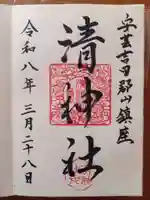 安芸吉田郡山鎮座
清神社
令和八年三月二十八日